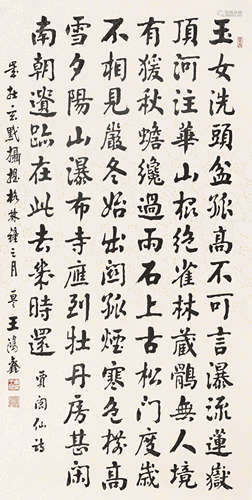 玉女洗頭盆孤高不可言瀑流蓮嶽
頂河注華山根絶雀林藏鶻無人境
有猨秋蟾纔過雨石上古松門度歲
不相見嚴冬始出關孤煙寒色樹高
雪夕陽山瀑布寺應到牡丹房甚閑
南朝遺跡在此去幾時還 賈閬仙詩
歲在玄黓攝提格林鐘之月 王鴻